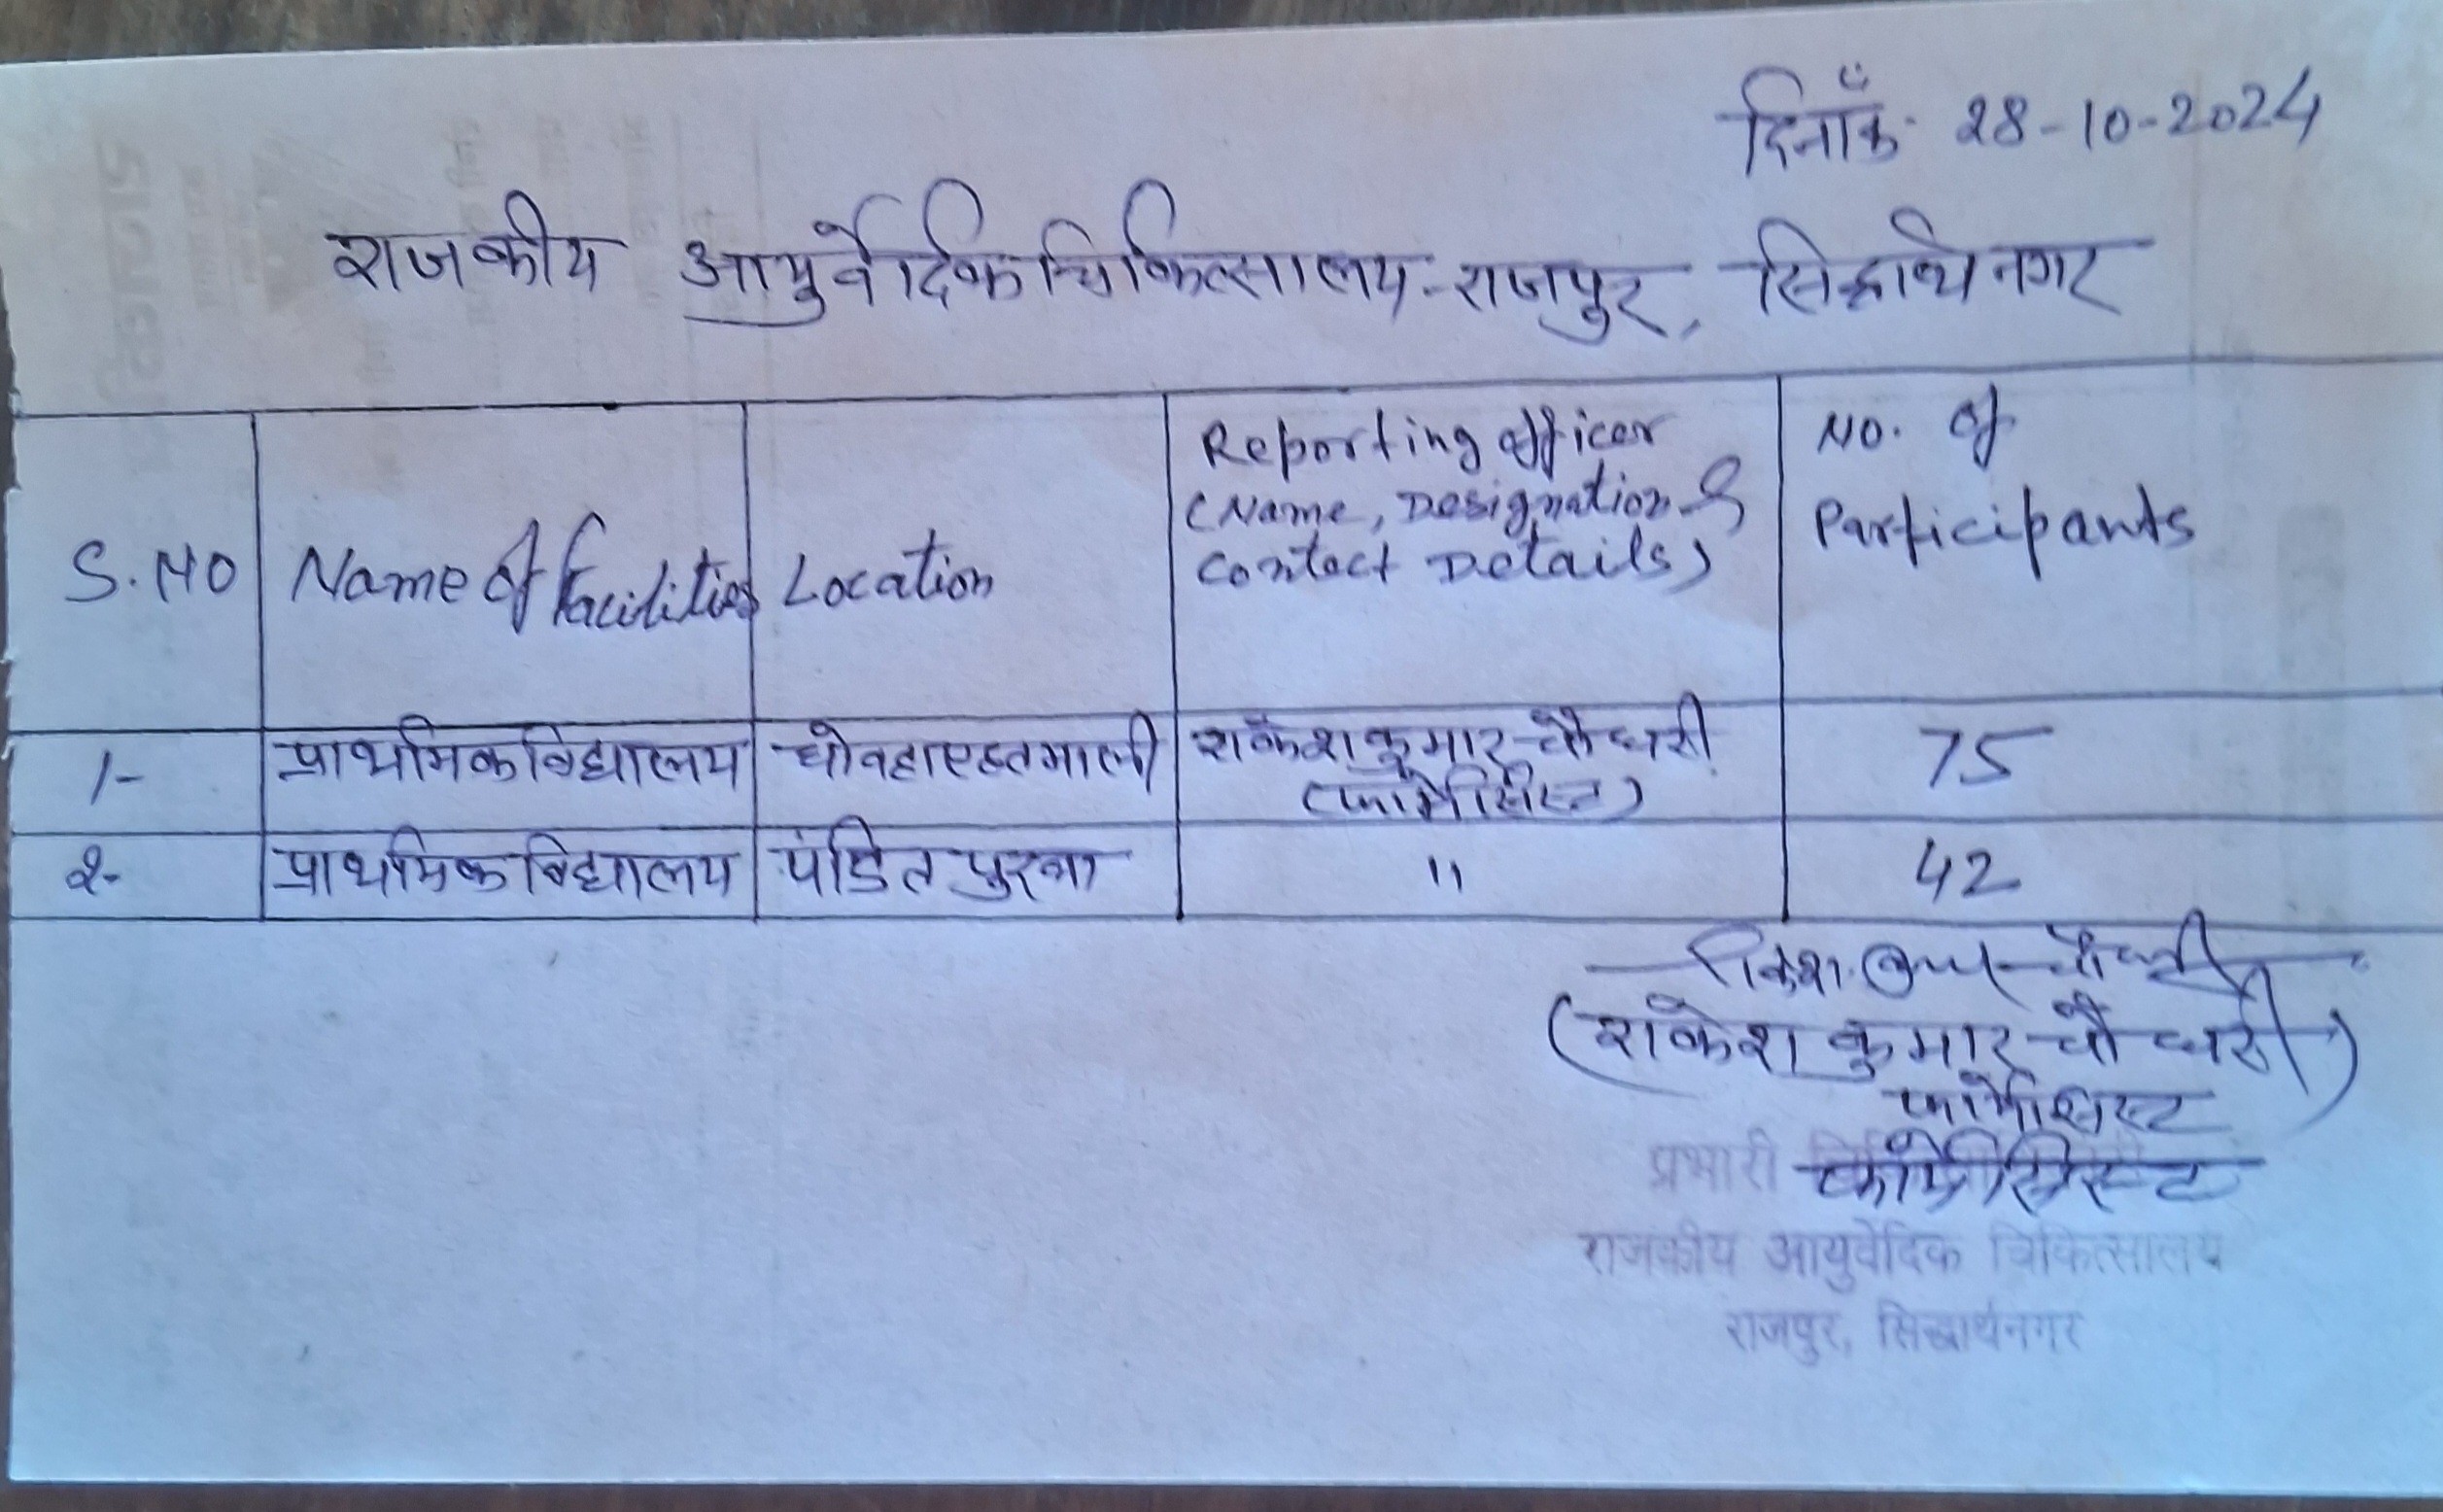 दिनाँक 28-10-2024
राजकीय आयुर्वेदिक चिकित्सालय-राजपुर, सिद्धार्थनगर
S.NO Name of Facilities Location Reporting officer (Name, Designation & Contact Details) No. of Participants
1- प्राथमिक विद्यालय राकेश कुमार चौधरी (फार्मेसिस्ट) 75
2- प्राथमिक विद्यालय पंडित पुरवा " 42
राकेश कुमार चौधरी
(राकेश कुमार चौधरी)
फार्मासिस्ट
प्रभारी फार्मेसिस्ट
राजकीय आयुर्वेदिक चिकित्सालय
राजपुर, सिद्धार्थनगर